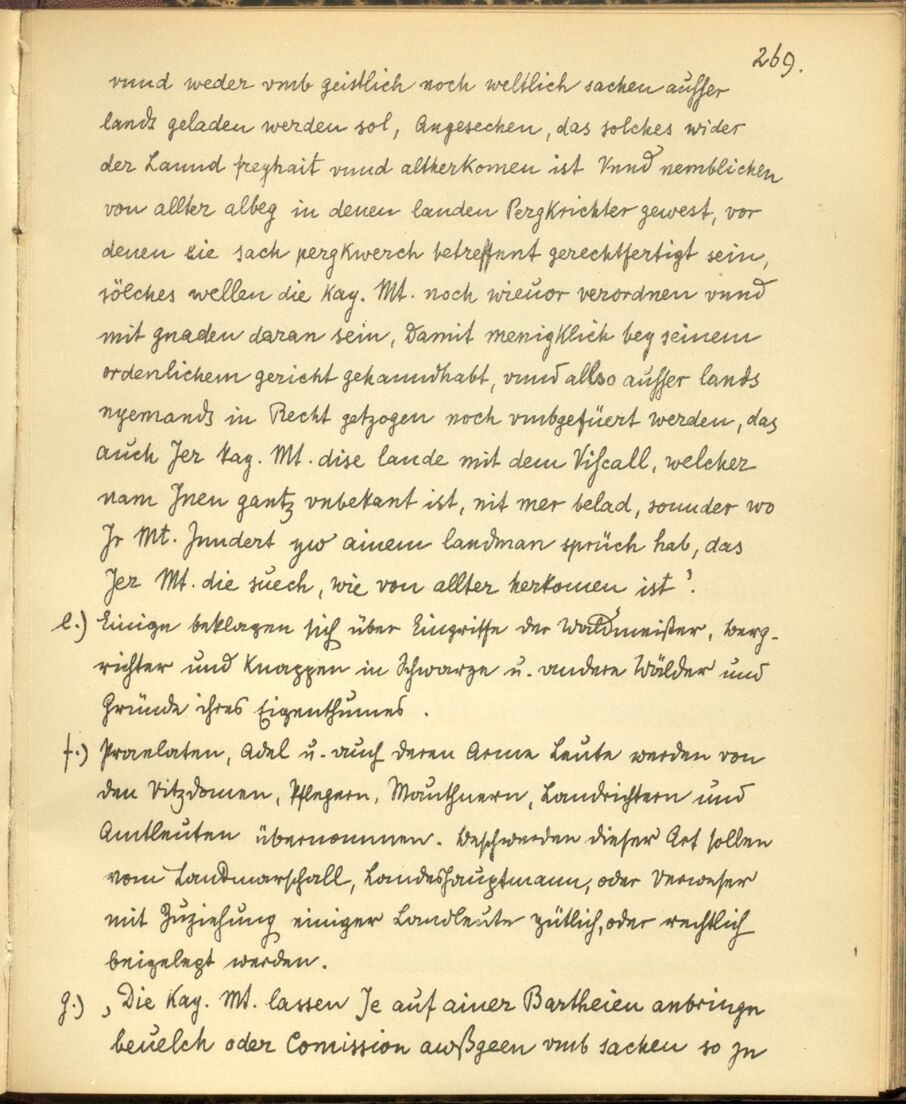 269.
vnnd weder vmb geistlich noch weltlich sachen ausser
lands geladen werden sol, Angesechen, das solches wider
der Lannd freyhait vnnd altherkomen ist Vnnd nemblichen
von allter albeg in denen landen Pergkrichter gewest, vor
denen die sach pergkwerch betreffent gerechtfertigt sein,
sölches wellen die Kay. Mt. noch wieuor verordnen vnnd
mit gnaden daran sein, Damit menigklich bey seinem
ordenlichem gericht gehanndhabt, vnnd allso ausser lands
nyemands in Recht getzogen noch vmbgefüert werden, das
auch Jer kay. Mt. dise lande mit dem Viscall, welcher
nam Jnen gantz vnbekant ist, nit mer belad, sonnder wo
Jr Mt. Jnndert zw ainem landman sprüch hab, das
Jer Mt. die suech, wie von allter herkomen ist'.
e.) Einige beklagen sich über Eingriffe der Waldmeister, Berg-
richter und Knappen in Schwarze u. andere Wälder und
Gründe ihres Eigenthumes.
f.) Praelaten, Adel u. auch deren Arme Leute werden von
den Vitzdomen, Pflegern, Mauthnern, Landrichtern und
Amtleuten übernommen. Beschwerden dieser Art sollen
vom Landmarschall, Landeshauptmann, oder Verweser
mit Zuziehung einiger Landleute gütlich, oder rechtlich
beigelegt werden.
g.) ‚Die Kay. Mt. lassen Je auf ainer Bartheien anbringn
beuelch oder Comission awßgeen vmb sachen so zu